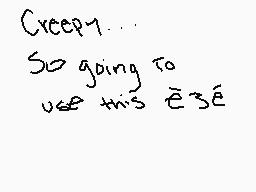 Creepy...
So going to
use this ē3ē